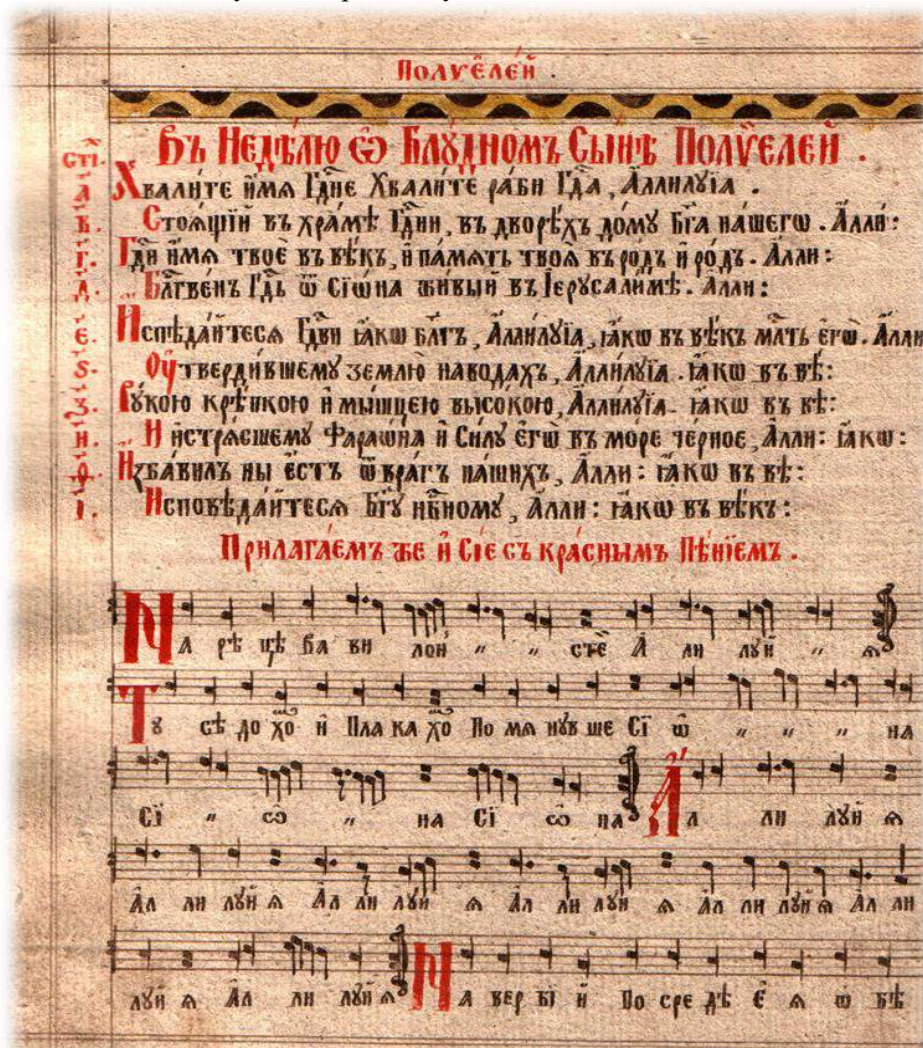 Полѵеле́й .
Въ Недѣ́лю Ѿ Блꙋ́дномъ Сы́нѣ Полѵеле́й .
стⷯі.
а҃. Хвали́те и́мѧ Гдⷭ҇не Хвали́те ра́би Гдⷭ҇а , А҆ллилꙋ́їа .
в҃. Стоѧ́щїи въ хра́мѣ Гдⷭ҇ни , въ дворѣ́хъ до́мꙋ Бг҃а на́шегѡ . А҆лли :
г҃. Гдⷭ҇и и́мѧ твоѐ въ вѣ́къ , и҆ па́мѧть твоѧ̀ въ ро́дъ и҆ ро́дъ . А҆лли :
д҃. Блгⷭ҇ве́нъ Гдⷭ҇ь ѿ Сїѡ́на живы́й въ Іерꙋсали́мѣ . А҆лли :
є҃. Исповѣ́дайтесѧ Гдⷭ҇ви ꙗ҆́кѡ бл҃гъ , А҆ллилꙋ́їа , ꙗ҆́кѡ въ вѣ́къ млⷭ҇ть єгѡ̀ . А҆лли
ѕ҃. Оу҆тверди́вшемꙋ зе́млю на вода́хъ , А҆ллилꙋ́їа . ꙗ҆́кѡ въ вѣ́ :
з҃. Рꙋко́ю крѣ́пкою и҆ мы́шцею высо́кою , А҆ллилꙋ́їа . ꙗ҆́кѡ въ вѣ́ :
и҃. И истрѧ́сшемꙋ Фараѡ́на и҆ Си́лꙋ єгѡ̀ въ мо́ре че́рное , А҆лли : ꙗ҆́кѡ :
ѳ҃. Изба́вилъ ны є҆́стъ ѿ вра́гъ на́шихъ , А҆лли : ꙗ҆́кѡ въ вѣ́ :
і҃. Исповѣ́дайтесѧ Бг҃ꙋ нбⷭ҇номꙋ , А҆лли : ꙗ҆́кѡ въ вѣ́къ :
Прилага́емъ же и҆ Сїѐ съ кра́снымъ Пѣ́нїемъ .
На рѣ цѣ ва ви лон „ „ сте А ли лꙋи „ ѧ
Тꙋ сѣ до хоⷨ и Пла ка хоⷨ По мѧ нꙋв ше Сї ѡ „ „ „ на
Сї „ ѡ „ на Сї ѡ на Ал ли лꙋи ѧ
Ал ли лꙋи ѧ Ал ли лꙋи ѧ Ал ли лꙋи ѧ Ал ли лꙋи ѧ Ал ли
лꙋи ѧ Ал ли лꙋи ѧ На вер бі и По сре дѣ Є ѧ ѡ бѣ